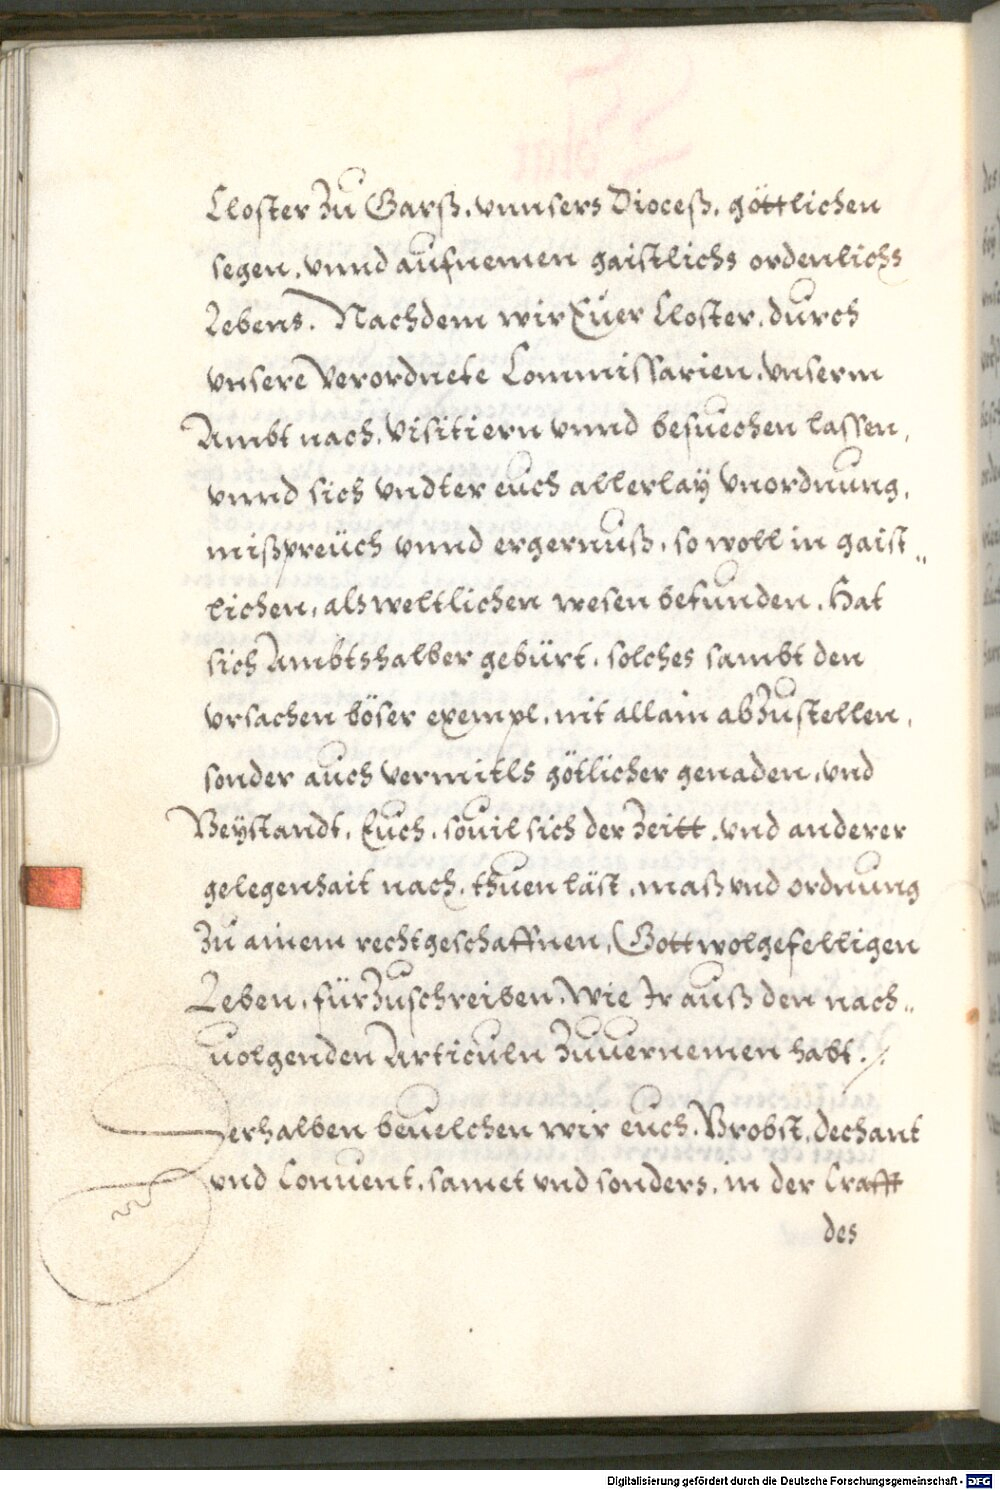 Closter Zu Garß, vnnsers Dioceß, göttlichen
segen, vnnd aufnemen gaistlichs ordenlichs
Lebens. Nachdem wir Euer Closter, durch
vnsere Verordnete Commissarien, vnserm
Ambt nach, Visitiern vnnd besuechen lassen,
vnnd sich vndter euch allerlay vnordnung,
mißpreüch vnnd ergernuß, so woll in gaist„
lichen, als weltlichen wesen befunden, Hat
sich Ambtshalber gebürt, solches sambt den
vrsachen böser exempl, nit allain abZustellen,
sonder auch vermitls götlicher genaden, vnd
Beystandt, Euch, souil sich der Zeitt, vnd anderer
gelegenhait nach, thuen läst, maß vnd ordnung
Zu ainem rechtgeschaffnen, Gott wolgefelligen
Leben, fürZuschreiben, Wie Ir auß den nach„
uolgenden Articuln Zuuernemen habt ./.
Derhalben beuelchen wir euch, Brobst, dechant
vnd Conuent, samet vnd sonders, in der Crafft
des
Digitalisierung gefördert durch die Deutsche Forschungsgemeinschaft - DFG